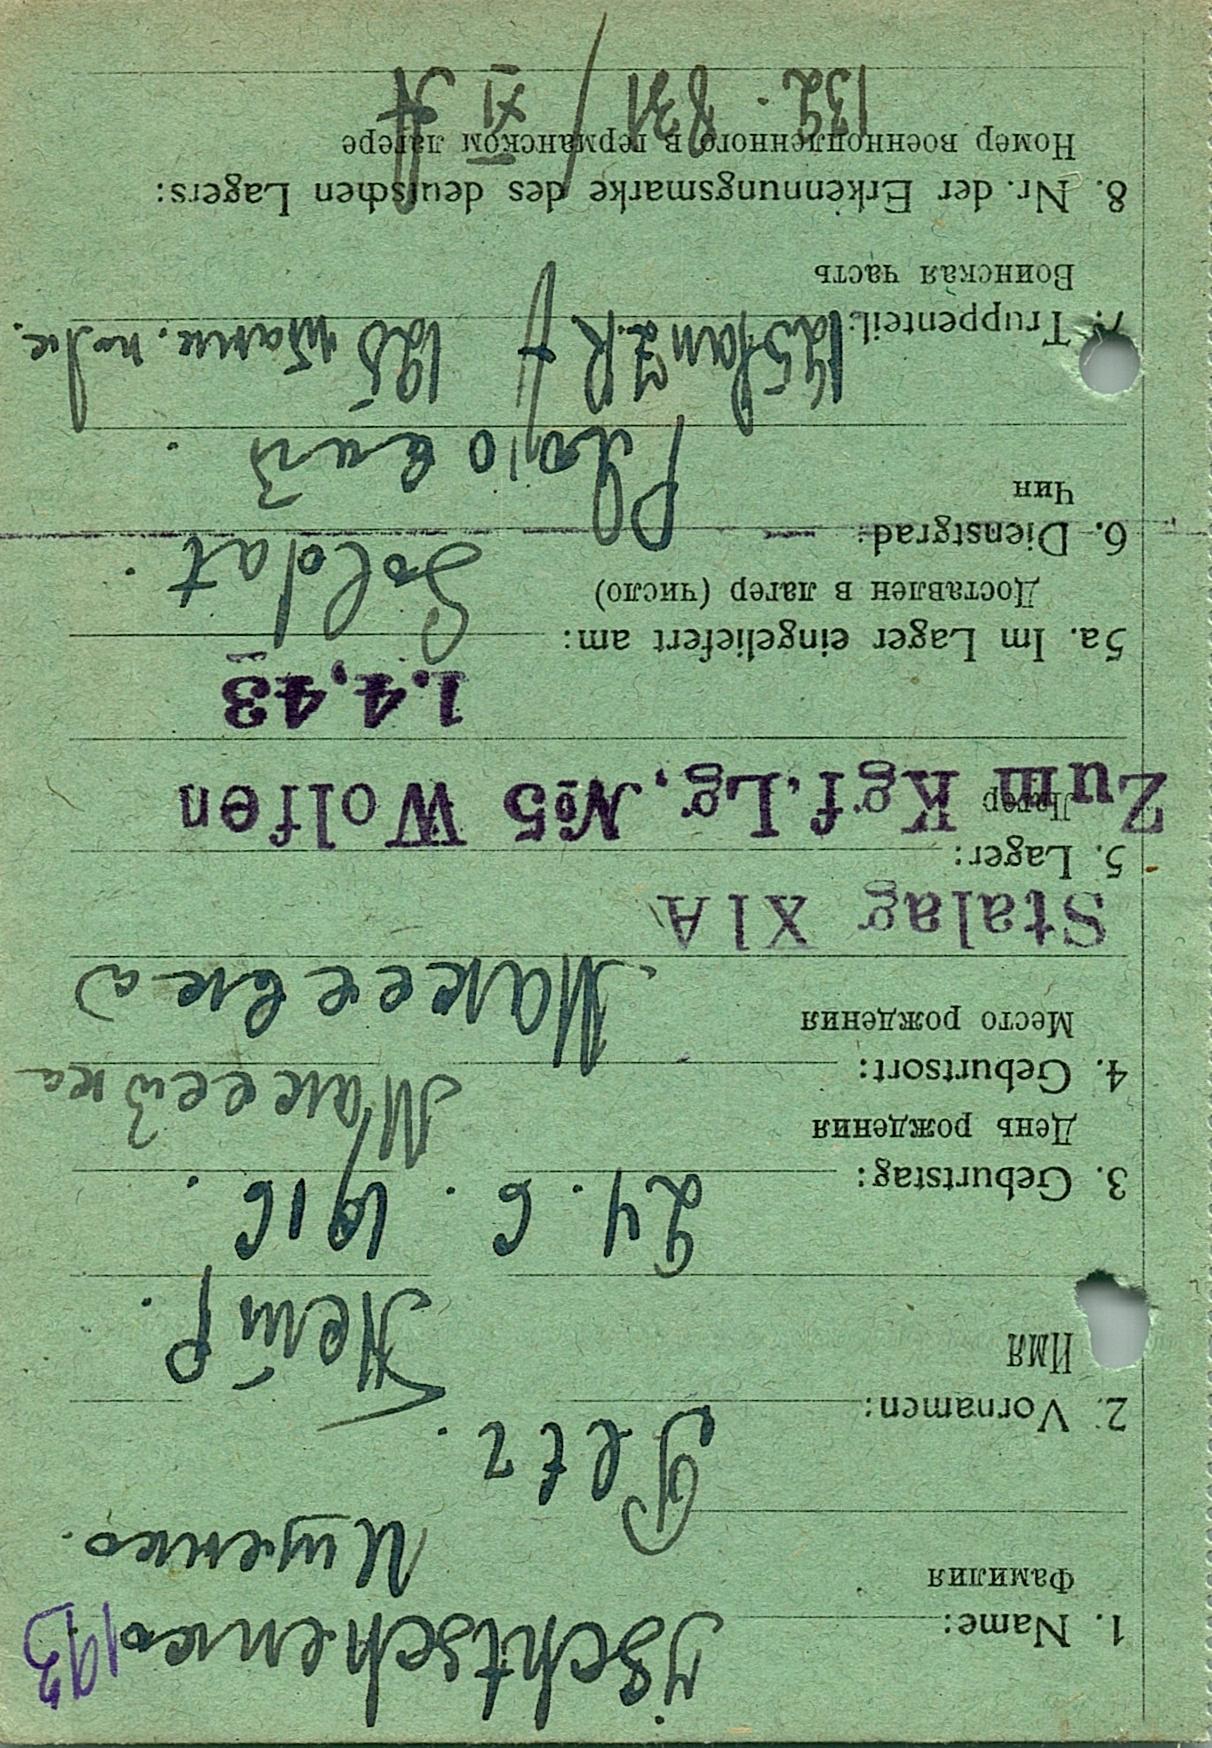 1. Name: Jschtschenko 193
Фамилия Ищенко.
2. Vornamen: Petr.
Имя Петр.
3. Geburtstag: 24. 6. 1916.
День рождения
4. Geburtsort: Макеевка
Место рождения Макеевка
Stalag XIA
5. Lager:
Лагер
Zum Kgf. Lg. №5 Wolfen
1.4.43
5a. Im Lager eingeliefert am:
Доставлен в лагер (число)
6. Dienstgrad: Soldat.
Чин Рядовой.
7. Truppenteil: 125
Воинская часть
8. Nr. der Erkennungsmarke des deutschen Lagers:
Номер военнопленного в германском лагере
132.831 / XI A